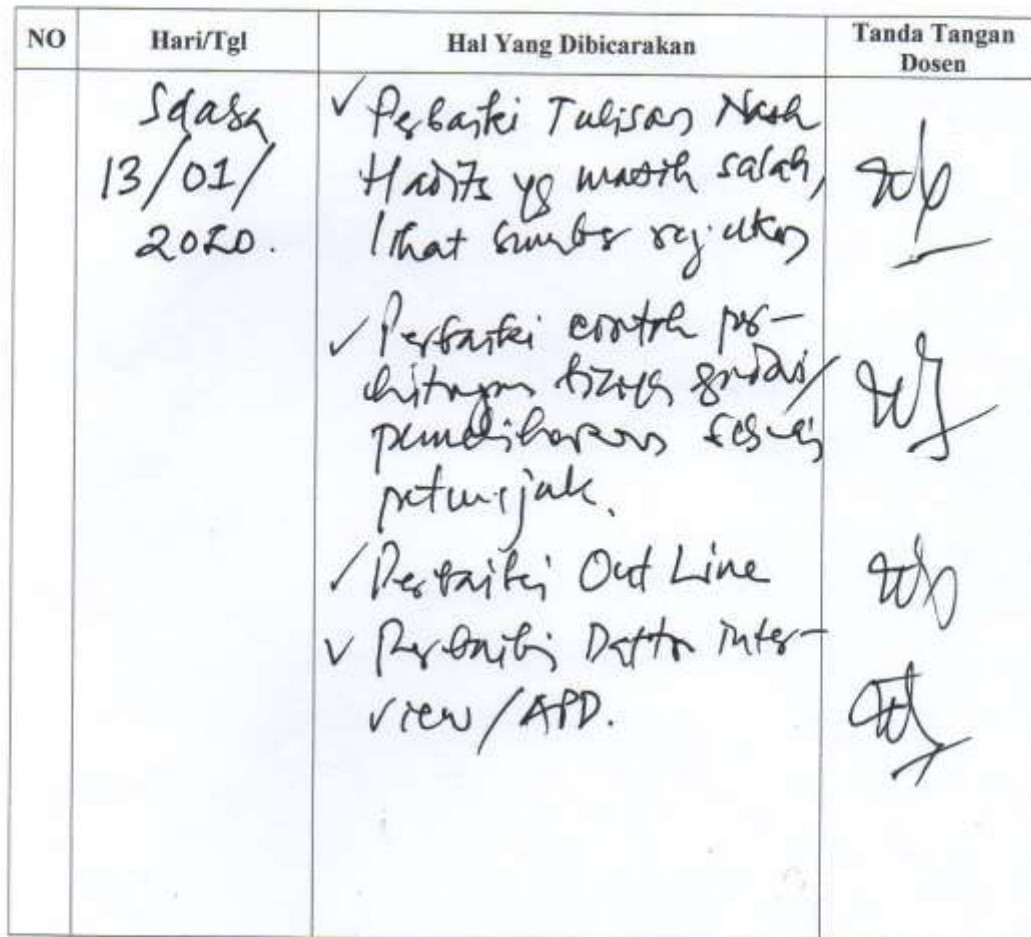 NO
Hari/Tgl
Hal Yang Dibicarakan
Tanda Tangan
Dosen
Selasa
13/01/
2020.
✓ Perbaiki Tulisan Nash
Hadits yg masih salah,
lihat sumber rujukan
✓ Perbaiki contoh per-
hitungan biaya gadai/
pemeliharaan sesuai
petunjuk.
✓ Perbaiki Out Line
✓ Perbaiki Daftar inter-
view/APD.